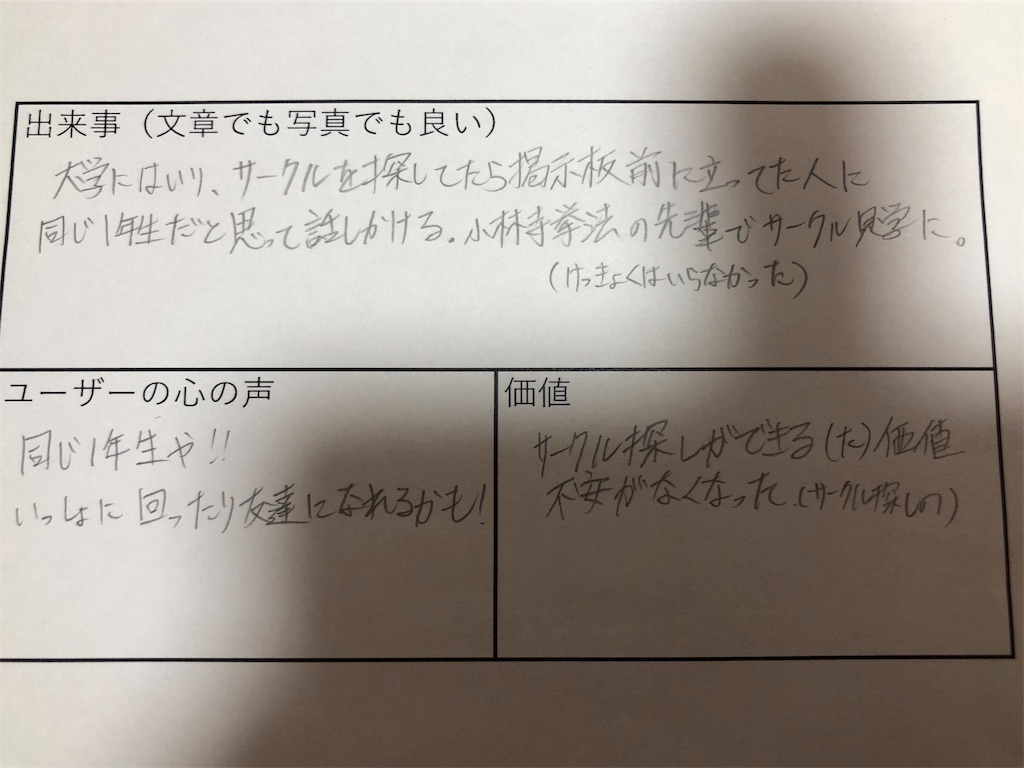 出来事（文章でも写真でも良い）
大学にはいり、サークルを探してたら掲示板前に立ってた人に
同じ1年生だと思って話しかける。小林寺拳法の先輩でサークル見学に。
（けっきょくはいらなかった）
ユーザーの心の声
同じ1年生や!!
いっしょに回ったり友達になれるかも!
価値
サークル探しができる(た)価値
不安がなくなった.(サークル探しの)